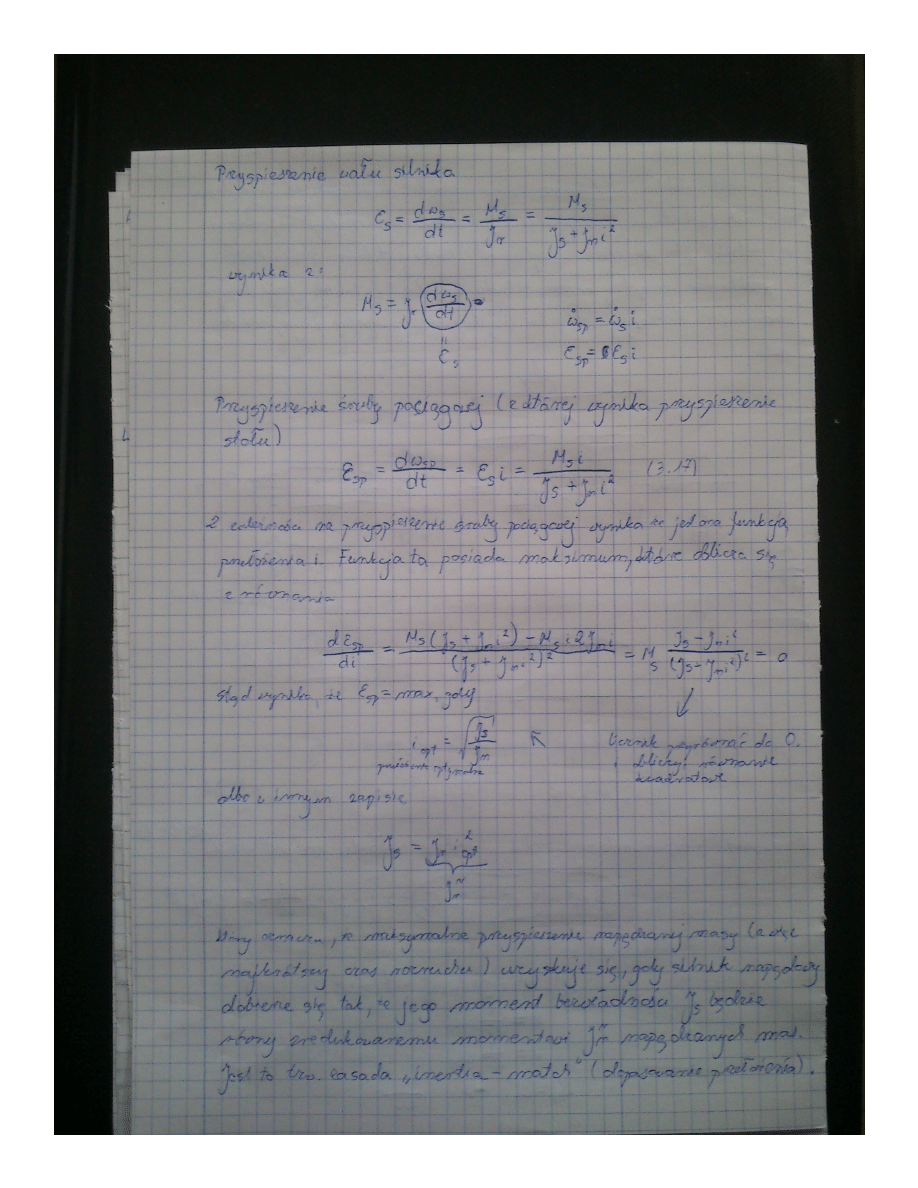 Przyspieszenie wału silnika
ε_s = dω_s/dt = M_s/J_r = M_s/(J_s + J_m i²)
wynika z:
M_s = J_r dω_s/dt
ω̇_sp = ω̇_s i
" ε_s
ε_sp = ε_s i
Przyspieszenie śruby pociągowej (z której wynika przyspieszenie
stołu)
ε_sp = dω_sp/dt = ε_s i = M_s i/(J_s + J_m i²) (3.17)
Z zależności na przyspieszenie śruby pociągowej wynika że jest ona funkcją
przełożenia i. Funkcja ta posiada maksimum, które oblicza się
z równania
dε_sp/di = (M_s (J_s + J_m i²) - M_s i 2 J_m i)/(J_s + J_m i²)² = M_s (J_s - J_m i²)/(J_s - J_m i²)² = 0
stąd wynika, że ε_sp = max, gdy
i_opt = √(J_s/J_m)
licznik przyrównać do 0.
przełożenie optymalne
obliczyć równanie
kwadratowe
albo w innym zapisie
J_s = J_m · i²_opt
Wzór oznacza, że maksymalne przyspieszenie napędzanej masy (a więc
najkrótszy czas rozruchu) uzyskuje się, gdy silnik napędowy
dobierze się tak, że jego moment bezwładności J_s będzie
równy zredukowanemu momentowi napędzanych mas.
Jest to tzw. zasada „inertia - match" (dopasowanie przełożenia).